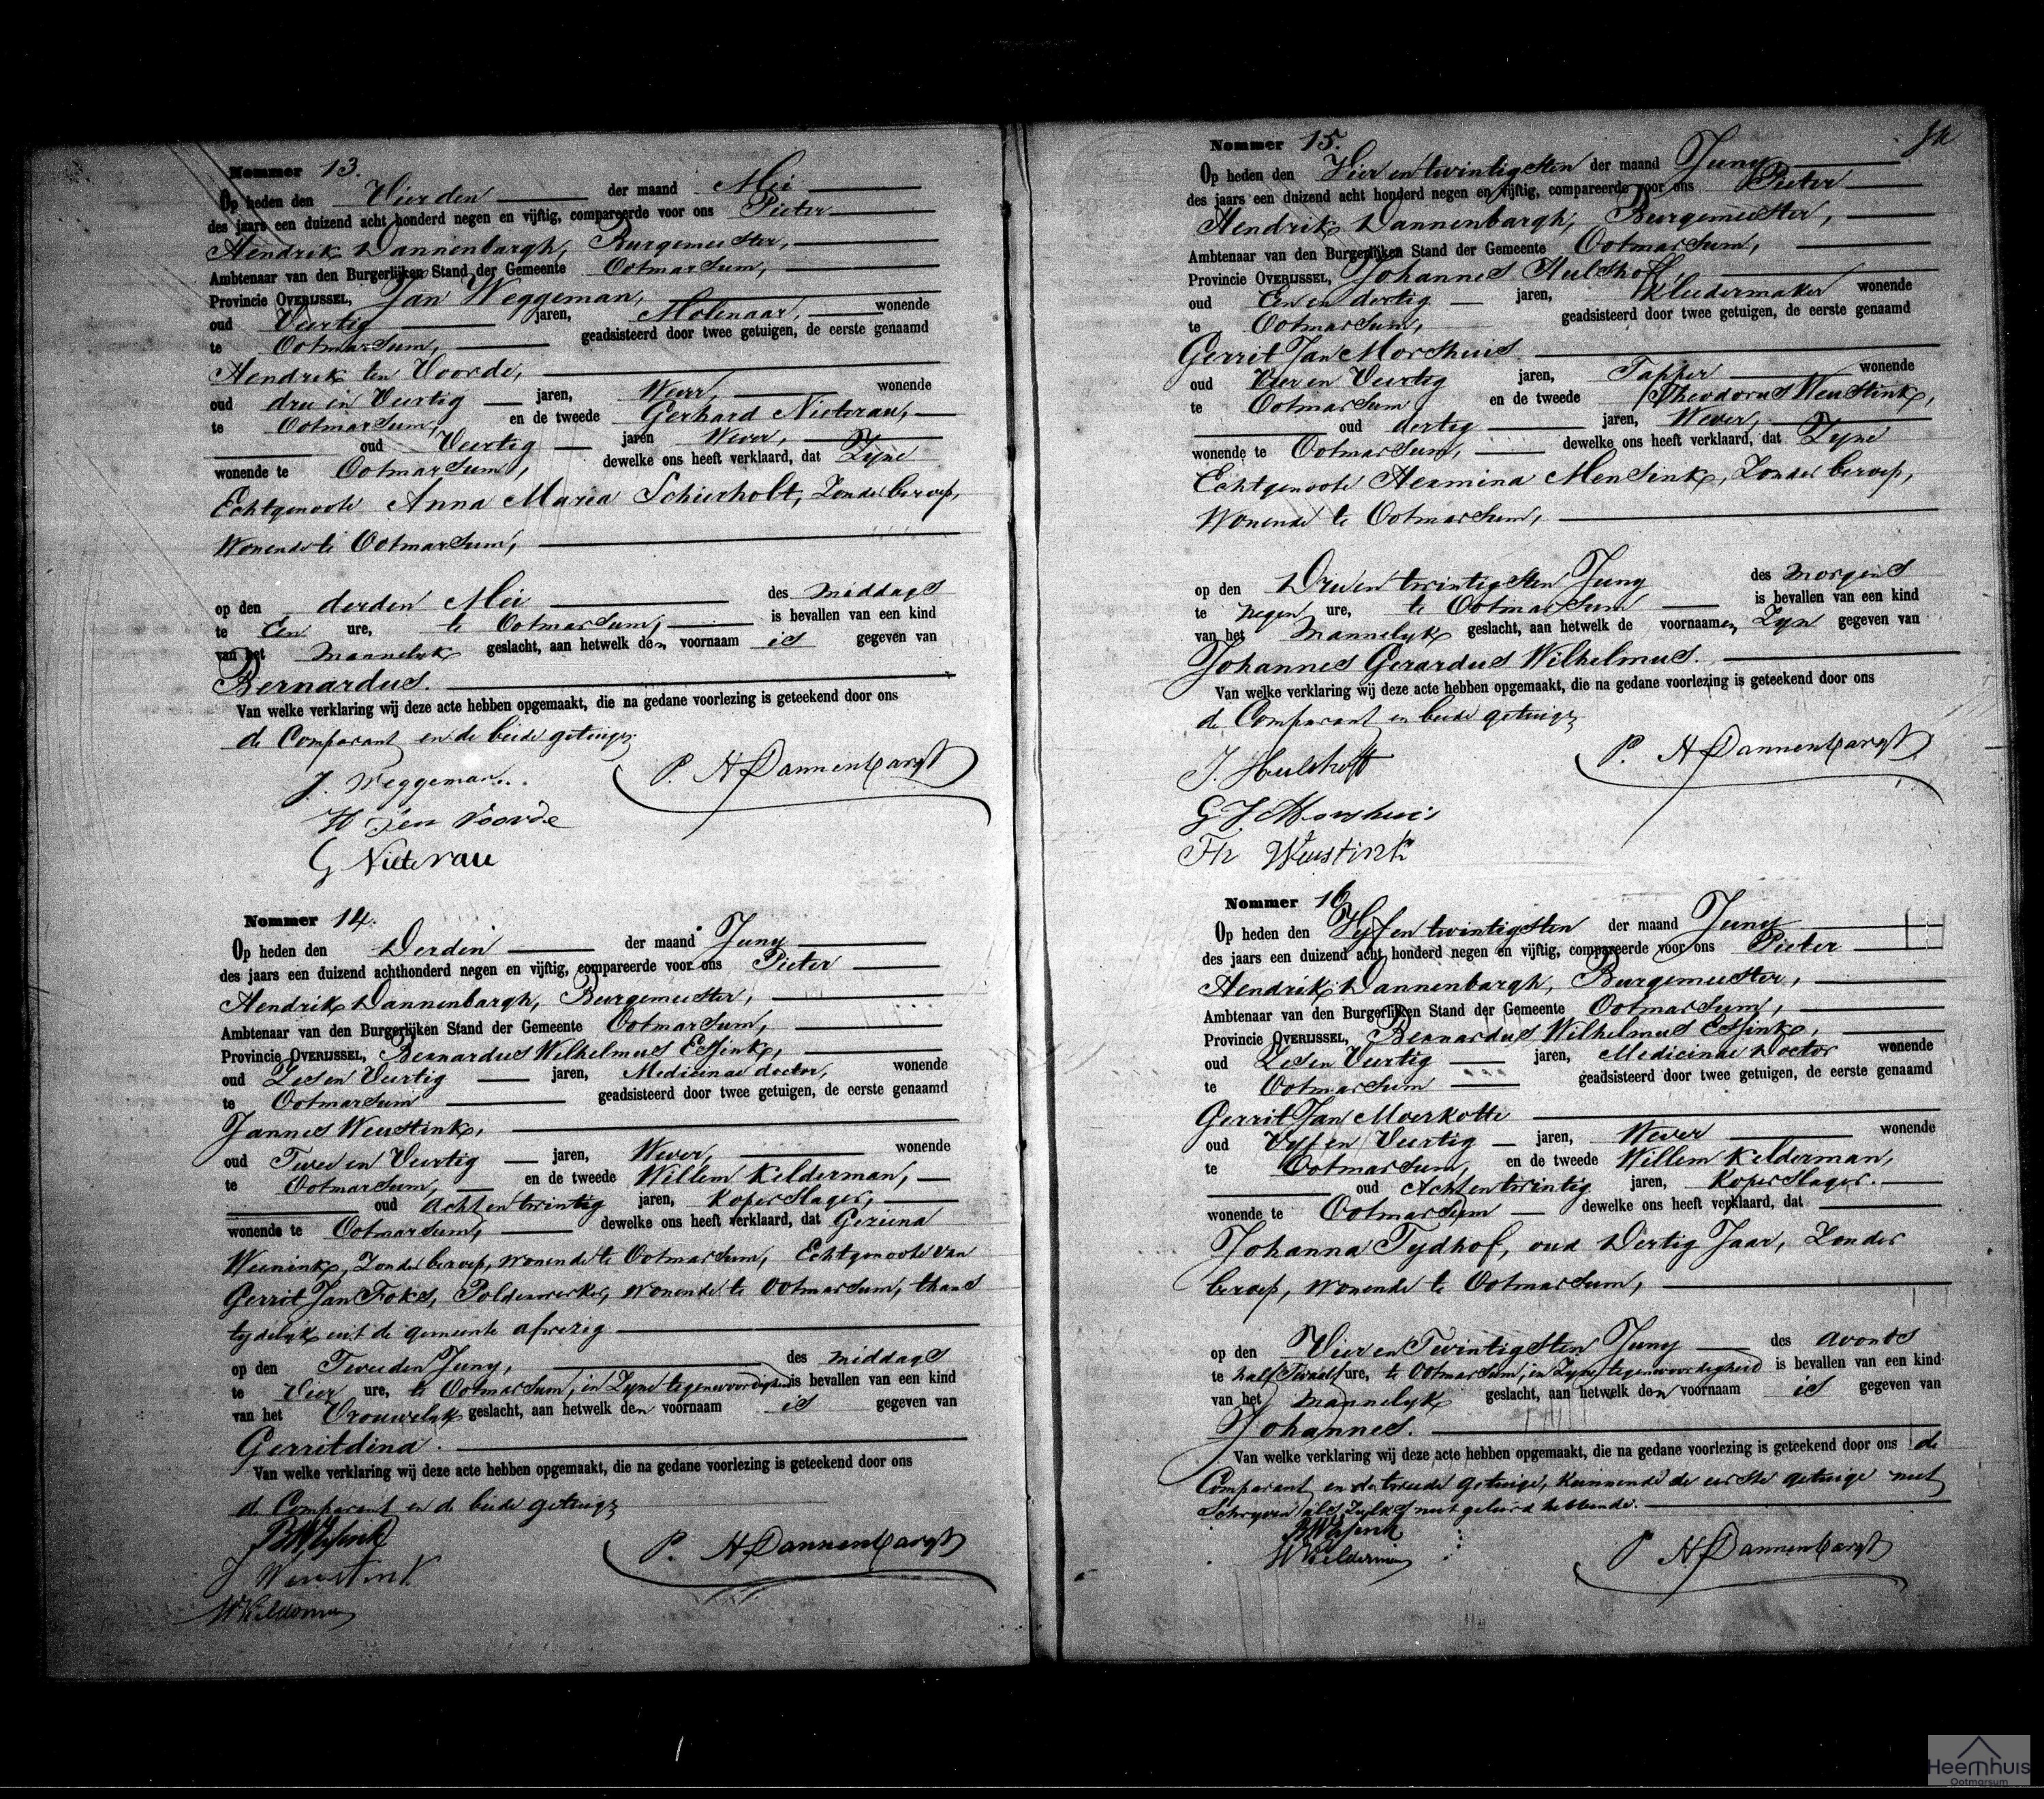 Nommer 13.
Op heden den Vierden der maand Mei
des jaars een duizend acht honderd negen en vijftig, compareerde voor ons Pieter
Hendrik Dannenbargh, Burgemeester,
Ambtenaar van den Burgerlijken Stand der Gemeente Ootmarsum,
Provincie OVERIJSSEL, Jan Weggeman,
oud Veertig jaren, Molenaar, wonende
te Ootmarsum, geadsisteerd door twee getuigen, de eerste genaamd
Hendrik ten Voorde,
oud drie en Veertig jaren, Wever, wonende
te Ootmarsum, en de tweede Gerhard Nieterau,
oud Veertig jaren Wever,
wonende te Ootmarsum, dewelke ons heeft verklaard, dat Zyne
Echtgenoote Anna Maria Schierholt, Zonder beroep,
Wonende te Ootmarsum,
op den derden Mei des middags
te Een ure, te Ootmarsum, is bevallen van een kind
van het Mannelyk geslacht, aan hetwelk den voornaam is gegeven van
Bernardus.
Van welke verklaring wij deze acte hebben opgemaakt, die na gedane voorlezing is geteekend door ons
de Comparant en de beide getuigen
J. Weggeman. P. H Dannenbargh
H ten Voorde
G Nieterau
Nommer 14.
Op heden den Derden der maand Juny
des jaars een duizend achthonderd negen en vijftig, compareerde voor ons Pieter
Hendrik Dannenbargh, Burgemeester,
Ambtenaar van den Burgerlijken Stand der Gemeente Ootmarsum,
Provincie OVERIJSSEL, Bernardus Wilhelmus Essink,
oud Zes en Veertig jaren, Medicinae doctor, wonende
te Ootmarsum geadsisteerd door twee getuigen, de eerste genaamd
Jannes Weustink,
oud Twee en Veertig jaren, Wever, wonende
te Ootmarsum, en de tweede Willem Kelderman,
oud Acht en twintig jaren, Koperslager,
wonende te Ootmarsum, dewelke ons heeft verklaard, dat Geziena
Weenink, Zonder beroep, wonende te Ootmarsum, Echtgenoote van
Gerrit Jan Foks, Polderwerker, wonende te Ootmarsum, thans
tydelyk uit de gemeente afwezig
op den Tweeden Juny, des middags
te Vier ure, te Ootmarsum, in Zyne tegenwoordigheid is bevallen van een kind
van het Vrouwelyk geslacht, aan hetwelk den voornaam is gegeven van
Gerritdina.
Van welke verklaring wij deze acte hebben opgemaakt, die na gedane voorlezing is geteekend door ons
de Comparant en de beide getuigen
BWEssink P. H Dannenbargh
J Weustink
WKelderman
Nommer 15.
Op heden den Vier en twintigsten der maand Juny
des jaars een duizend acht honderd negen en vijftig, compareerde voor ons Pieter
Hendrik Dannenbargh, Burgemeester,
Ambtenaar van den Burgerlijken Stand der Gemeente Ootmarsum,
Provincie OVERIJSSEL, Johannes Hulshoff,
oud Een en dertig jaren, Kleedermaker wonende
te Ootmarsum, geadsisteerd door twee getuigen, de eerste genaamd
Gerrit Jan Morshuis
oud Vier en Veertig jaren, Tapper wonende
te Ootmarsum en de tweede Theodorus Weustink,
oud dertig jaren, Wever,
wonende te Ootmarsum, dewelke ons heeft verklaard, dat Zyne
Echtgenoote Hermina Mensink, Zonder beroep,
Wonende te Ootmarsum,
op den Drie en twintigsten Juny des Morgens
te Negen ure, te Ootmarsum is bevallen van een kind
van het Mannelyk geslacht, aan hetwelk de voornaamen Zyn gegeven van
Johannes Gerardus Wilhelmus.
Van welke verklaring wij deze acte hebben opgemaakt, die na gedane voorlezing is geteekend door ons
de Comparant en beide getuigen
J. Hulshoff P. H Dannenbargh
G J Morshuis
Th Weustink
Nommer 16
Op heden den Vyf en twintigsten der maand Juny
des jaars een duizend acht honderd negen en vijftig, compareerde voor ons Pieter
Hendrik Dannenbargh, Burgemeester,
Ambtenaar van den Burgerlijken Stand der Gemeente Ootmarsum,
Provincie OVERIJSSEL, Bernardus Wilhelmus Essink,
oud Zes en Veertig jaren, Medicinae Doctor wonende
te Ootmarsum geadsisteerd door twee getuigen, de eerste genaamd
Gerrit Jan Moerkotte
oud Vyf en Veertig jaren, Wever wonende
te Ootmarsum, en de tweede Willem Kelderman,
oud Acht en twintig jaren, Koperslager.
wonende te Ootmarsum dewelke ons heeft verklaard, dat
Johanna Tydhof, oud Dertig Jaar, Zonder
beroep, wonende te Ootmarsum,
op den Vier en Twintigsten Juny des avonds
te half Twaalf ure, te Ootmarsum, in Zyne tegenwoordigheid is bevallen van een kind
van het Mannelyk geslacht, aan hetwelk den voornaam is gegeven van
Johannes.
Van welke verklaring wij deze acte hebben opgemaakt, die na gedane voorlezing is geteekend door ons de
Comparant en de tweede getuige, kunnende de eerste getuige niet
Schryven als Zulks niet geleerd hebbende.
BWEssink
WKelderman P H Dannenbargh
Heemhuis
Ootmarsum